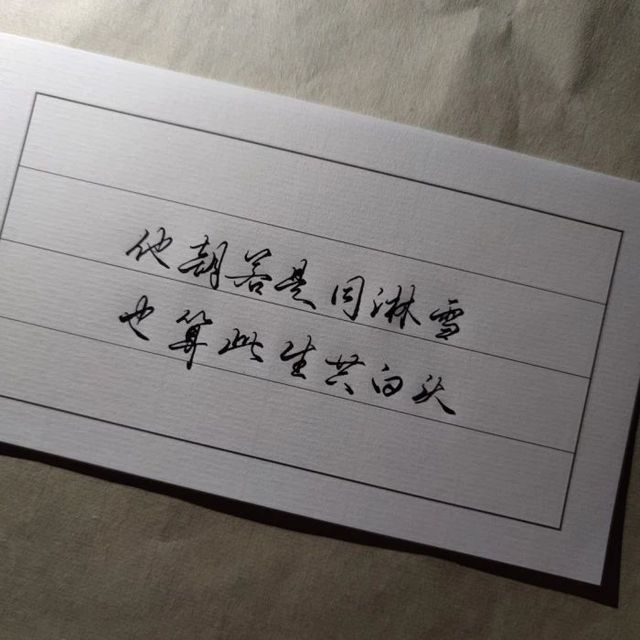 他朝若是同淋雪
也算此生共白头